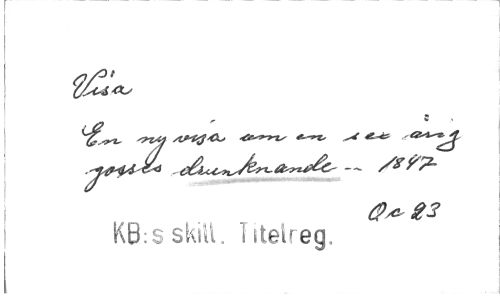 Visa
En ny visa om en sex årig
gosses drunknande -- 1847
Qc 23
KB:s skill. Titelreg.